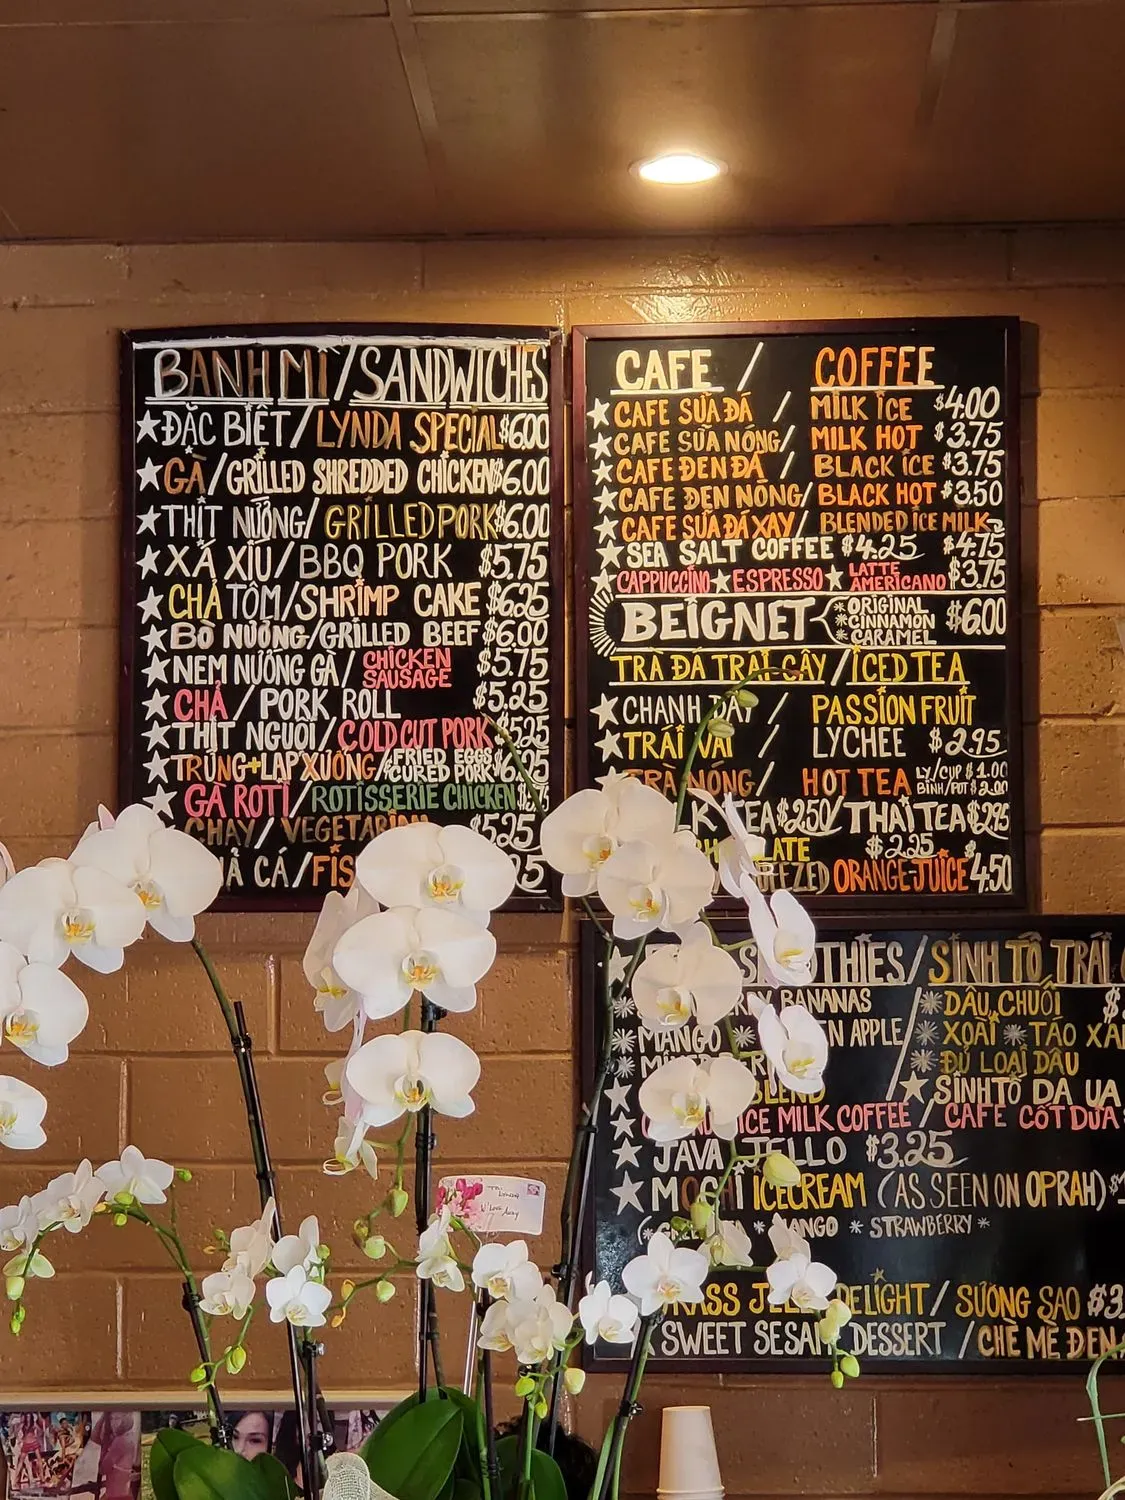 BANH MÌ / SANDWICHES
★ ĐẶC BIỆT / LYNDA SPECIAL $6.00
★ GÀ / GRILLED SHREDDED CHICKEN $6.00
★ THỊT NƯỚNG / GRILLED PORK $6.00
★ XÁ XÍU / BBQ PORK $5.75
★ CHẢ TÔM / SHRIMP CAKE $6.25
★ BÒ NƯỚNG / GRILLED BEEF $6.00
★ NEM NƯỚNG GÀ / CHICKEN SAUSAGE $5.75
★ CHẢ / PORK ROLL $5.25
★ THỊT NGUỘI / COLD CUT PORK $5.25
★ TRỨNG + LẠP XƯỞNG / FRIED EGGS & CURED PORK
★ GÀ ROTI / ROTISSERIE CHICKEN
CHAY / VEGETARIAN $5.25
CÁ /
CAFE / COFFEE
★ CAFE SỮA ĐÁ / MILK ICE $4.00
★ CAFE SỮA NÓNG / MILK HOT $3.75
★ CAFE ĐEN ĐÁ / BLACK ICE $3.75
★ CAFE ĐEN NÓNG / BLACK HOT $3.50
★ CAFE SỮA ĐÁ XAY / BLENDED ICE MILK $4.75
★ SEA SALT COFFEE $4.25
★ CAPPUCCINO ★ ESPRESSO ★ LATTE AMERICANO $3.75
BEIGNET * ORIGINAL * CINNAMON * CARAMEL $6.00
TRÀ ĐÁ TRÁI CÂY / ICED TEA
★ CHANH DÂY / PASSION FRUIT
★ TRÁI VẢI / LYCHEE $2.95
TRÀ NÓNG / HOT TEA LY/CUP $1.00
BÌNH/POT $2.00
TEA $2.50 / THAI TEA $2.95
$2.25
ORANGE JUICE 4.50
/ SINH TỐ TRÁI
BANANAS / * DÂU CHUỐI
* MANGO APPLE * XOÀI * TÁO
* ĐỦ LOẠI DÂU
BLEND ★ SINH TỐ DA UA
ICE MILK COFFEE / CAFE CỐT DỪA
★ JAVA JELLO $3.25
★ MOCHI ICECREAM (AS SEEN ON OPRAH)
* MANGO * STRAWBERRY *
DELIGHT / SƯƠNG SAO
SWEET SESAME DESSERT / CHÈ MÈ ĐEN